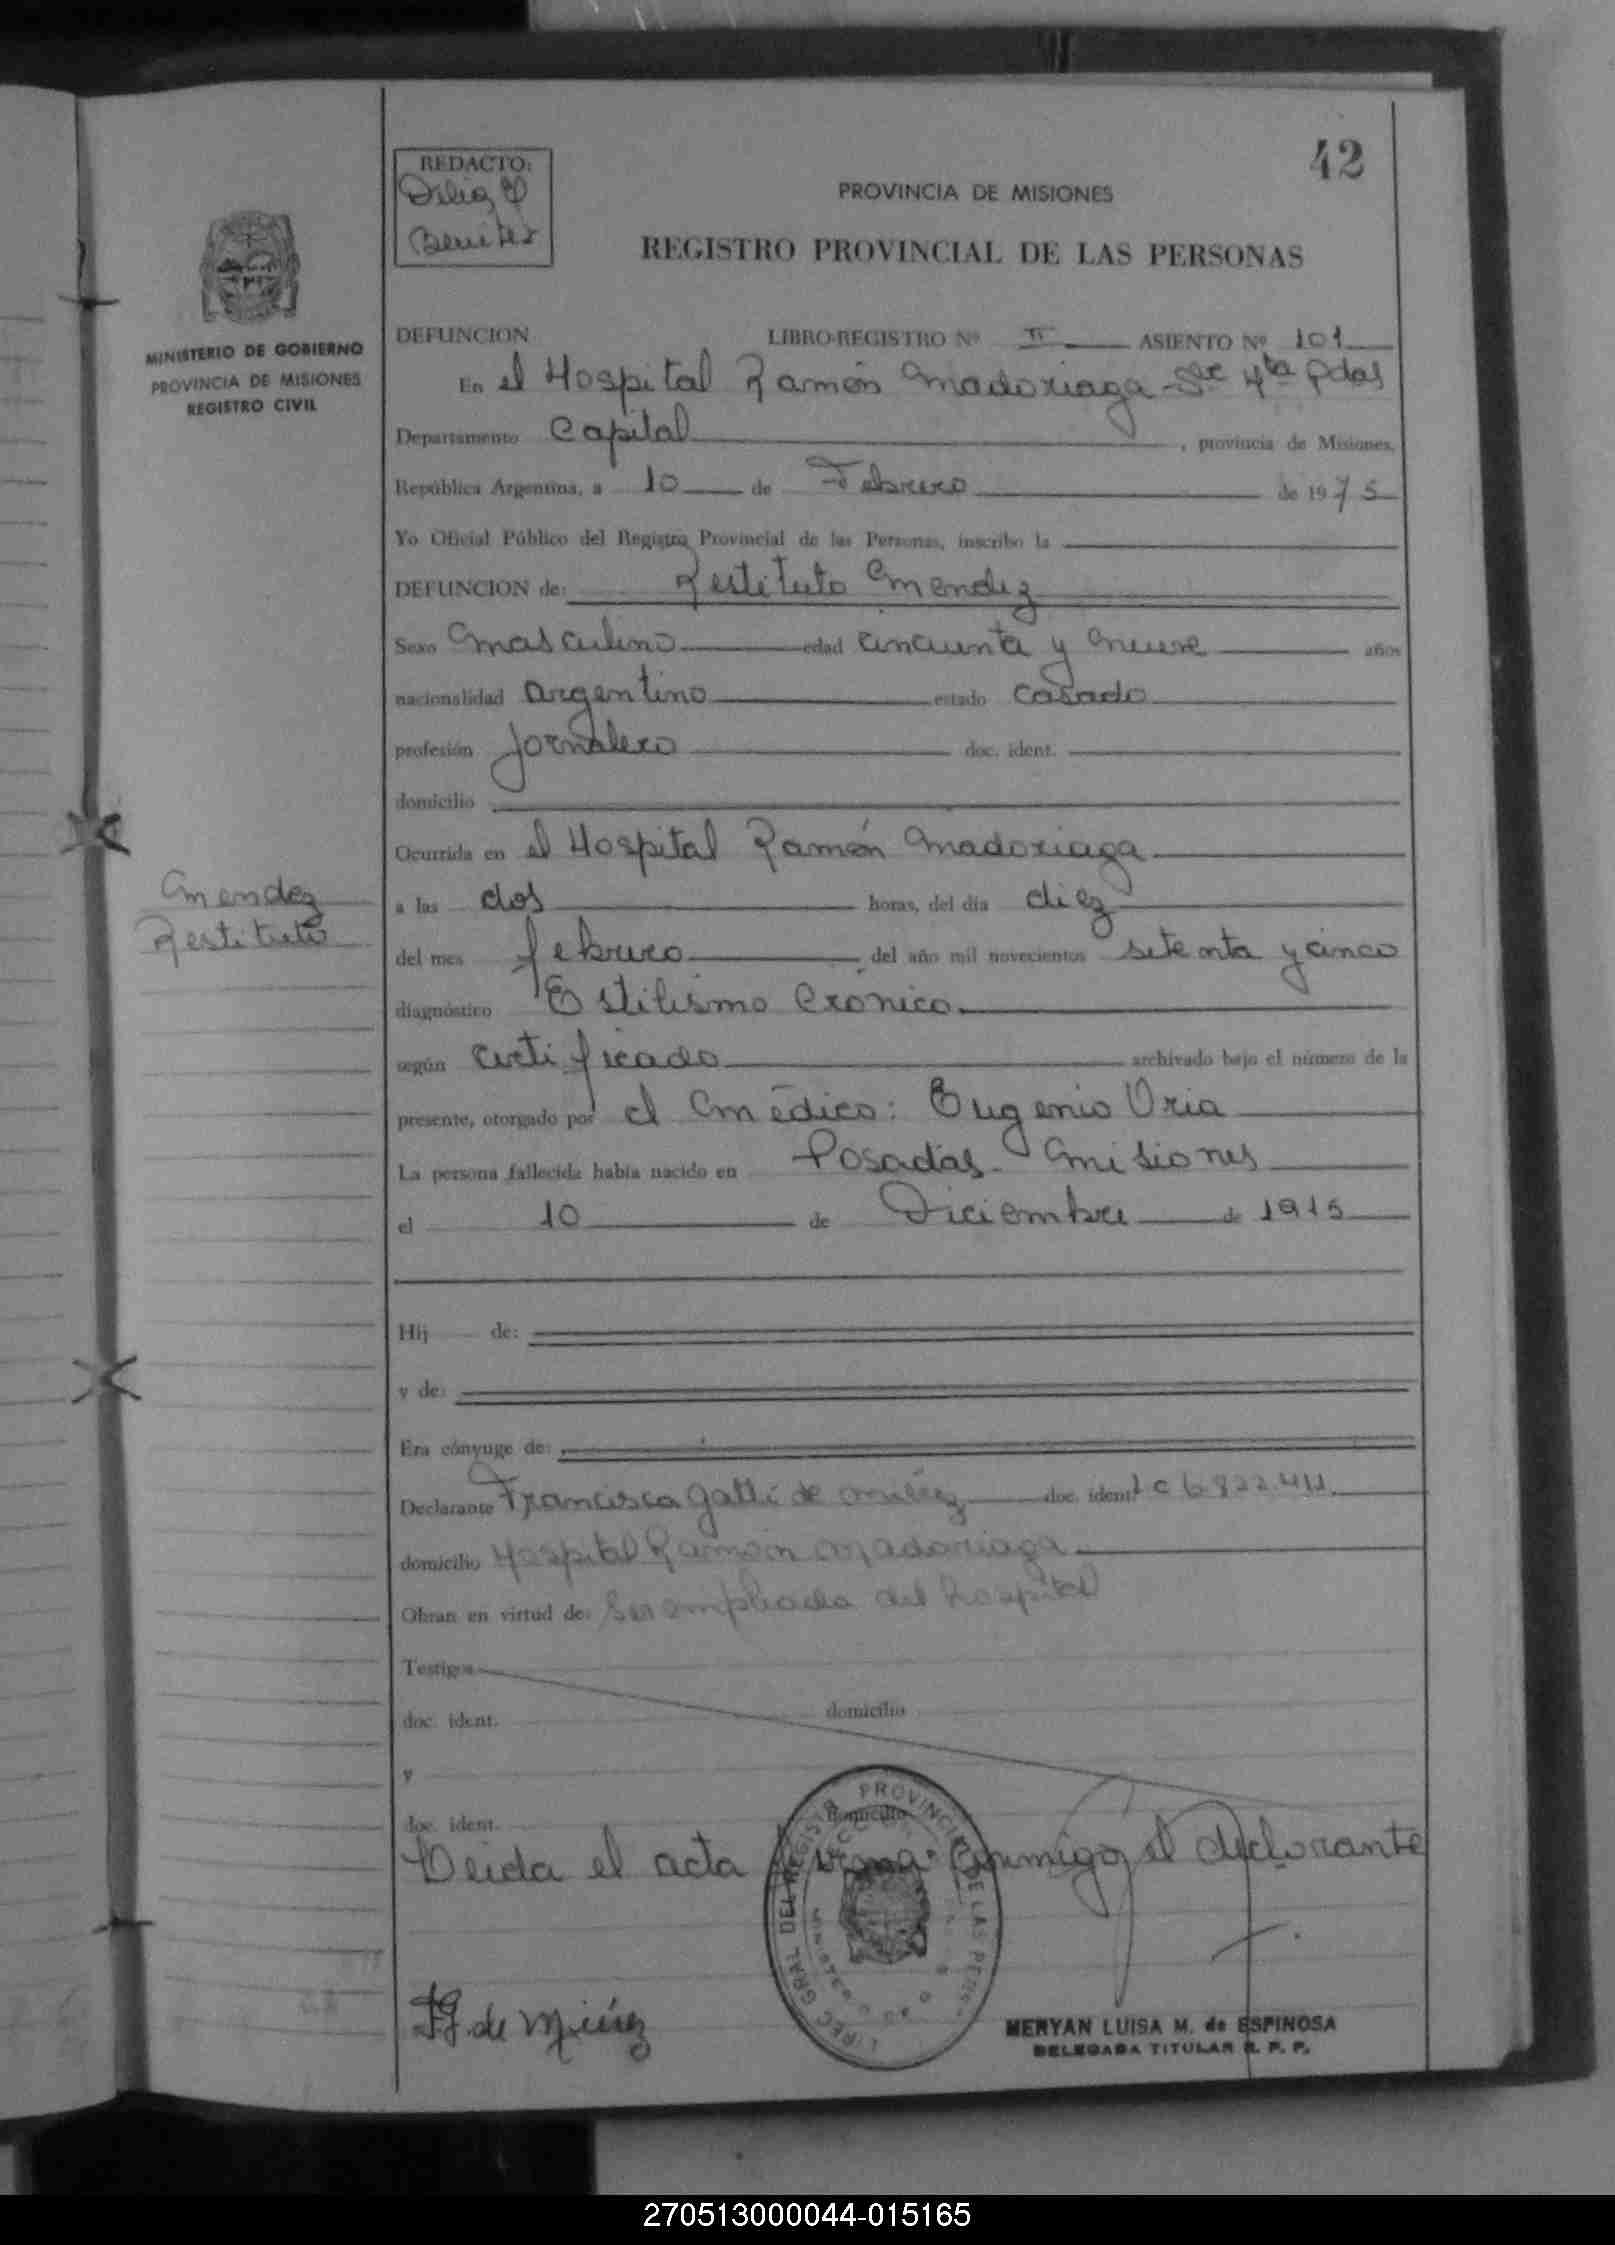 42
REDACTO:
Delia
Benitez
PROVINCIA DE MISIONES
REGISTRO PROVINCIAL DE LAS PERSONAS
MINISTERIO DE GOBIERNO
PROVINCIA DE MISIONES
REGISTRO CIVIL
DEFUNCION LIBRO-REGISTRO Nº II ASIENTO Nº 101
En el Hospital Ramón Madoriaga Sec 4ta Pdas
Departamento Capital, provincia de Misiones,
República Argentina, a 10 de Febrero de 1975
Yo Oficial Público del Registro Provincial de las Personas, inscribo la
DEFUNCION de: Restituto Mendez
Sexo Masculino edad cincuenta y nueve años
nacionalidad argentino estado casado
profesión Jornalero doc. ident.
domicilio
Ocurrida en el Hospital Ramón Madoriaga
a las dos horas, del día diez
del mes febrero del año mil novecientos setenta y cinco
diagnóstico Estilismo Cronico
según certificado archivado bajo el número de la
presente, otorgado por el Médico: Eugenio Uria
La persona fallecida había nacido en Posadas Misiones
el 10 de Diciembre de 1915
Mendez
Restituto
Hij de:
y de:
Era cónyuge de:
Declarante Francisca Gatti de doc. ident. LC 6.822.411
domicilio Hospital Ramón Madariaga
Obran en virtud de: Ser empleada del hospital
Testigos
doc. ident. domicilio
y
doc. ident. domicilio
Leida el acta firma conmigo el declarante
DIREC GRAL DEL REGISTR PROVINCIAL DE LAS PERS
F G. de
MERYAN LUISA M. de ESPINOSA
DELEGADA TITULAR R. P. P.
270513000044-015165